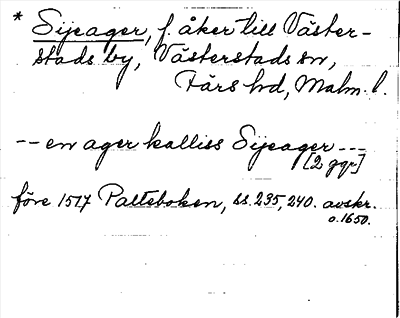 * Sijeager, f. åker till Väster-
stads by, Västerstads sn,
Färs hd, Malm. l.
-- en ager kalliss Sijeager ---
[2 ggr]
före 1517 Palteboken, ss. 235, 240. avskr.
o. 1650.